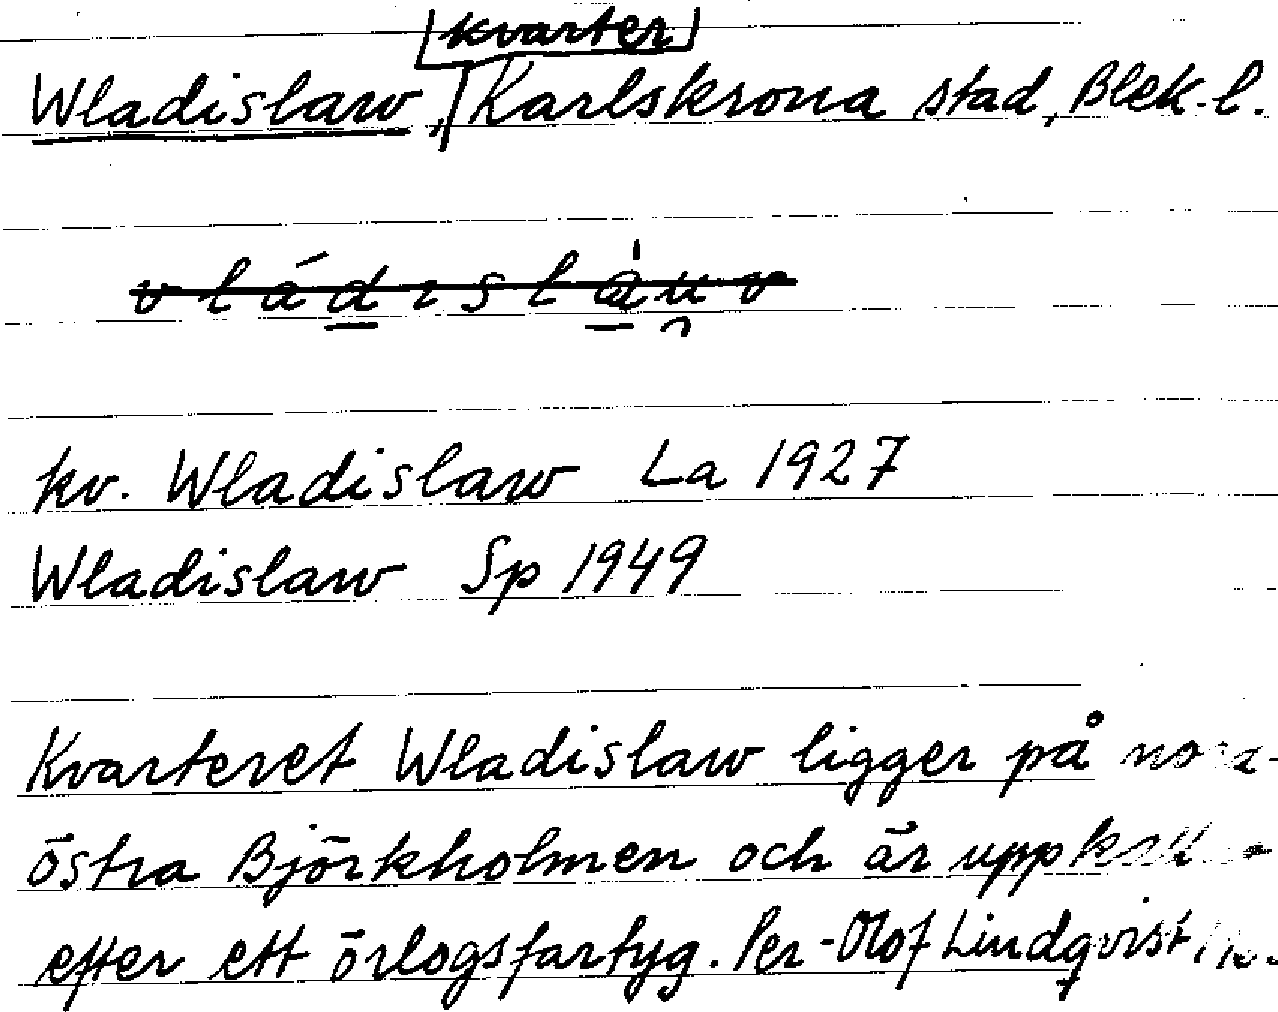 kvarter
Wladislaw, Karlskrona stad, Blek. l.
vládıslàuv
kv. Wladislaw La 1927
Wladislaw Sp 1949
Kvarteret Wladislaw ligger på
östra Björkholmen och är
efter ett örlogsfartyg. Per-Olof Lindqvist